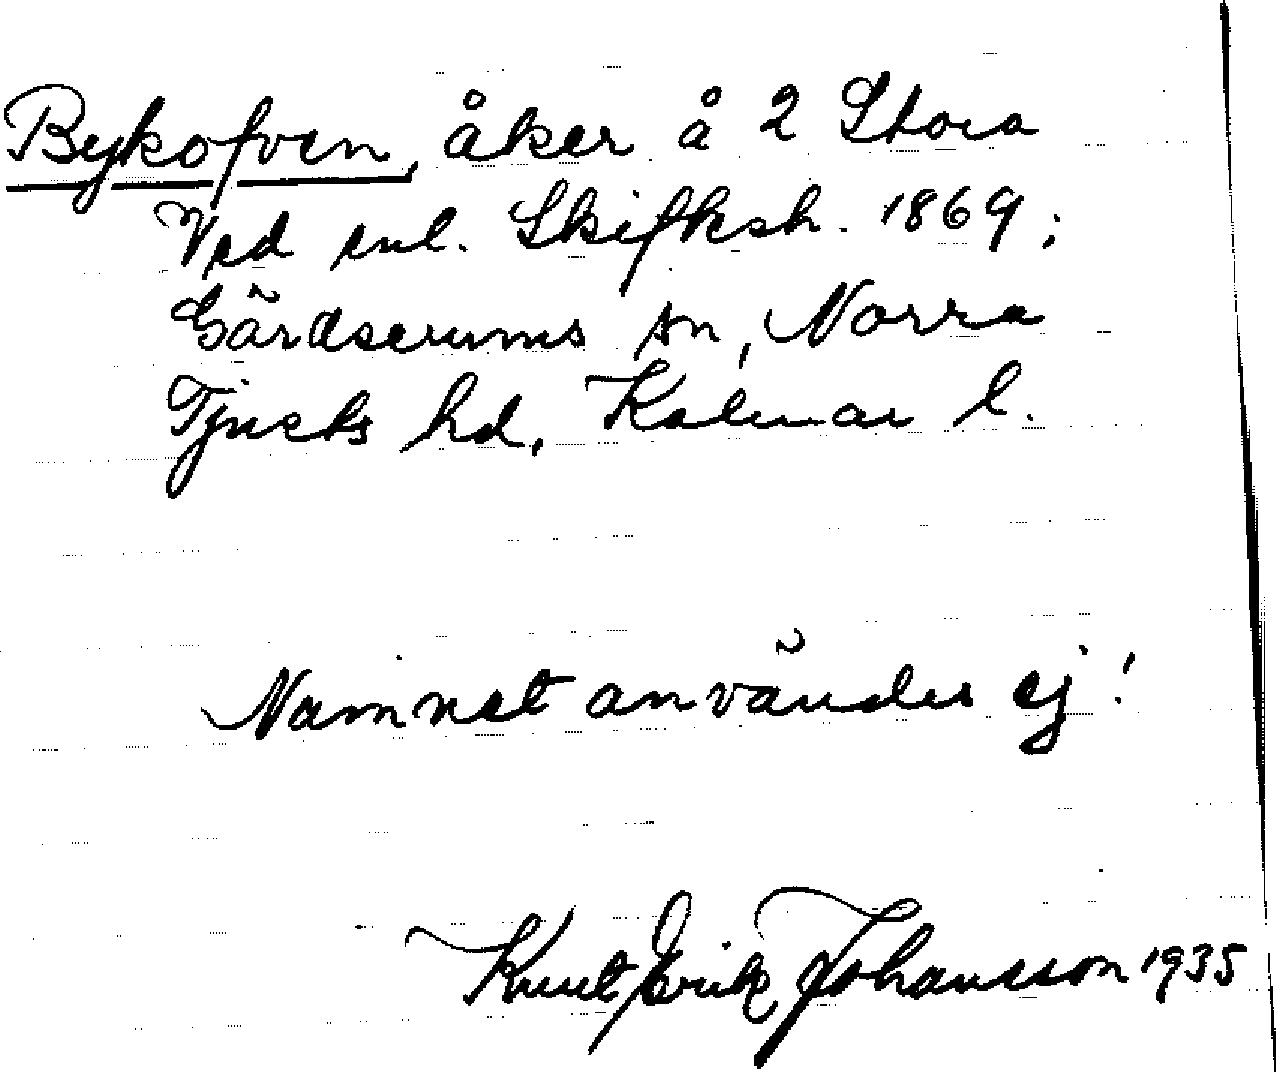 Bykofven, åker å 2 Stora
Ved enl. Skifksh. 1869;
Gärdserums sn, Norra
Tjusts hd, Kalmar l.
Namnet användes ej!
Knut Erik Johansson 1935